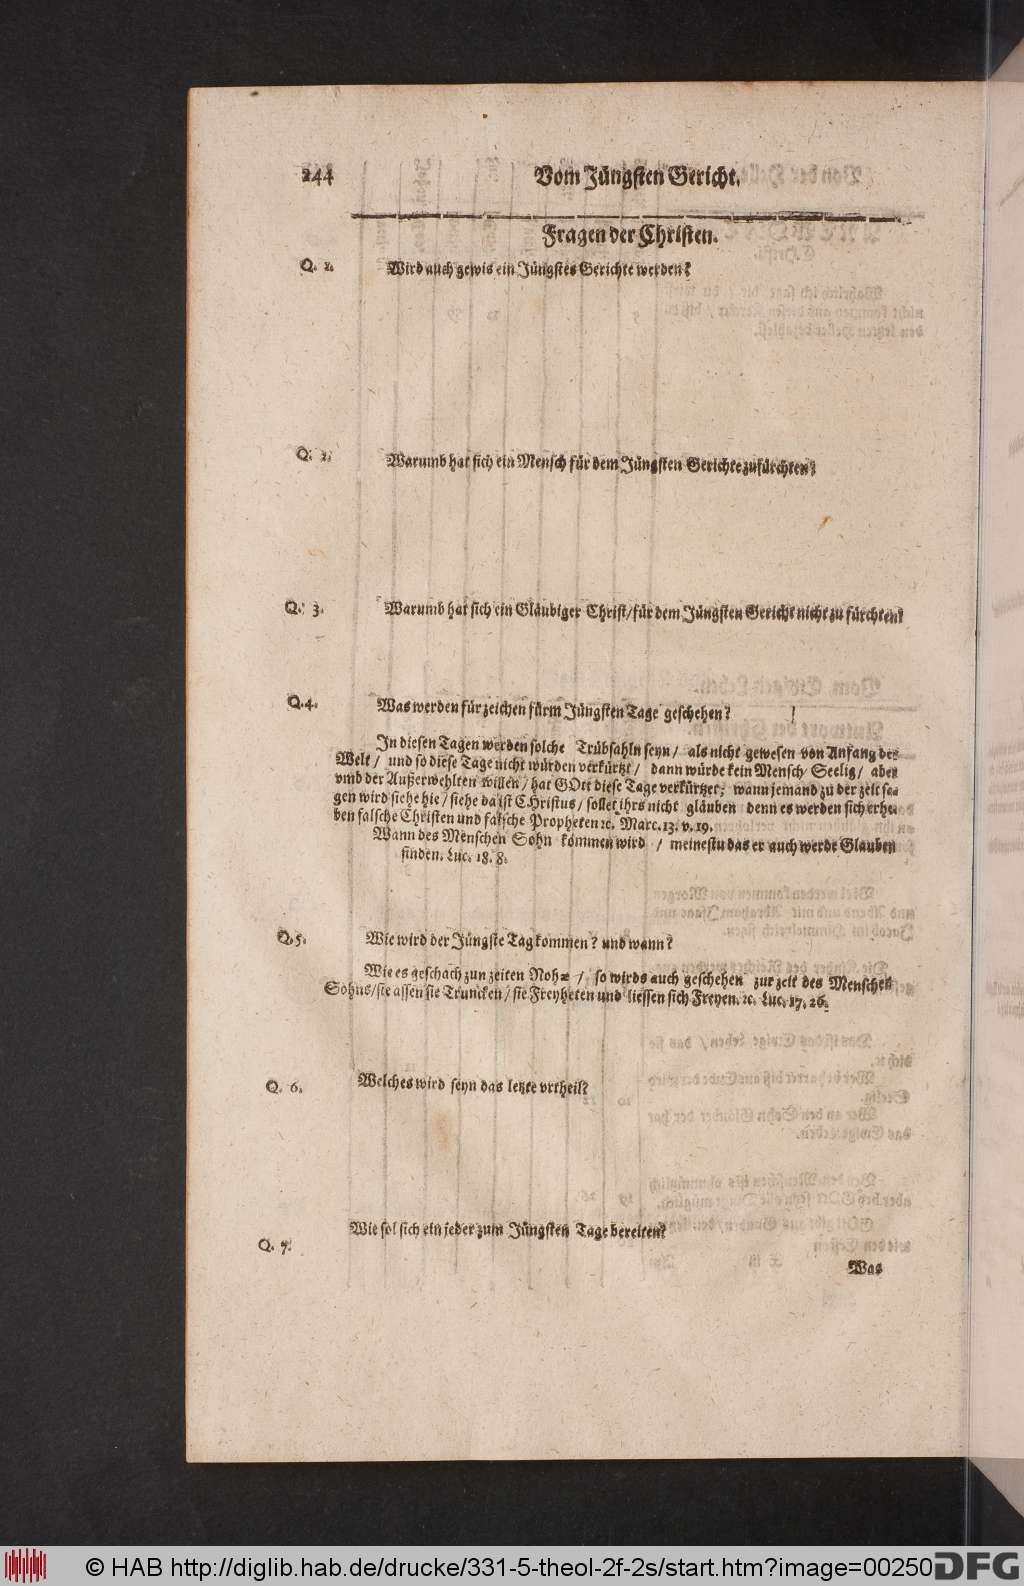 244 Vom Jüngsten Gericht.
Fragen der Christen.
Q. 1. Wird auch gewis ein Jüngstes Gerichte werden?
Q. 2. Warumb hat sich ein Mensch für dem Jüngsten Gerichte zufürchten?
Q. 3. Warumb hat sich ein Gläubiger Christ/für dem Jüngsten Gericht nicht zu fürchten?
Q.4. Was werden für zeichen fürm Jüngsten Tage geschehen?
In diesen Tagen werden solche Trübsahln seyn/ als nicht gewesen von Anfang der
Welt/ und so diese Tage nicht würden verkürtzt/ dann würde kein Mensch Seelig/ aber
vmb der Außerwehlten willen/ hat GOtt diese Tage verkürtzet; wann jemand zu der zeit sa-
gen wird siehe hie/ siehe da ist CHristus/ sollet ihrs nicht gläuben denn es werden sich erhe-
ben falsche Christen und falsche Propheten ꝛc. Marc. 13. v. 19.
Wann des Menschen Sohn kommen wird / meinestu das er auch werde Glauben
finden. Luc. 18. 8.
Q.5. Wie wird der Jüngste Tag kommen? und wann?
Wie es geschach zun zeiten Nohæ/ so wirds auch geschehen zur zeit des Menschen
Sohns/sie assen sie Truncken/ sie Freyheten und liessen sich Freyen. ꝛc. Luc. 17. 26.
Q. 6. Welches wird seyn das letzte vrtheil?
Q. 7. Wie sol sich ein jeder zum Jüngsten Tage bereiten?
Was
© HAB http://diglib.hab.de/drucke/331-5-theol-2f-2s/start.htm?image=00250
DFG